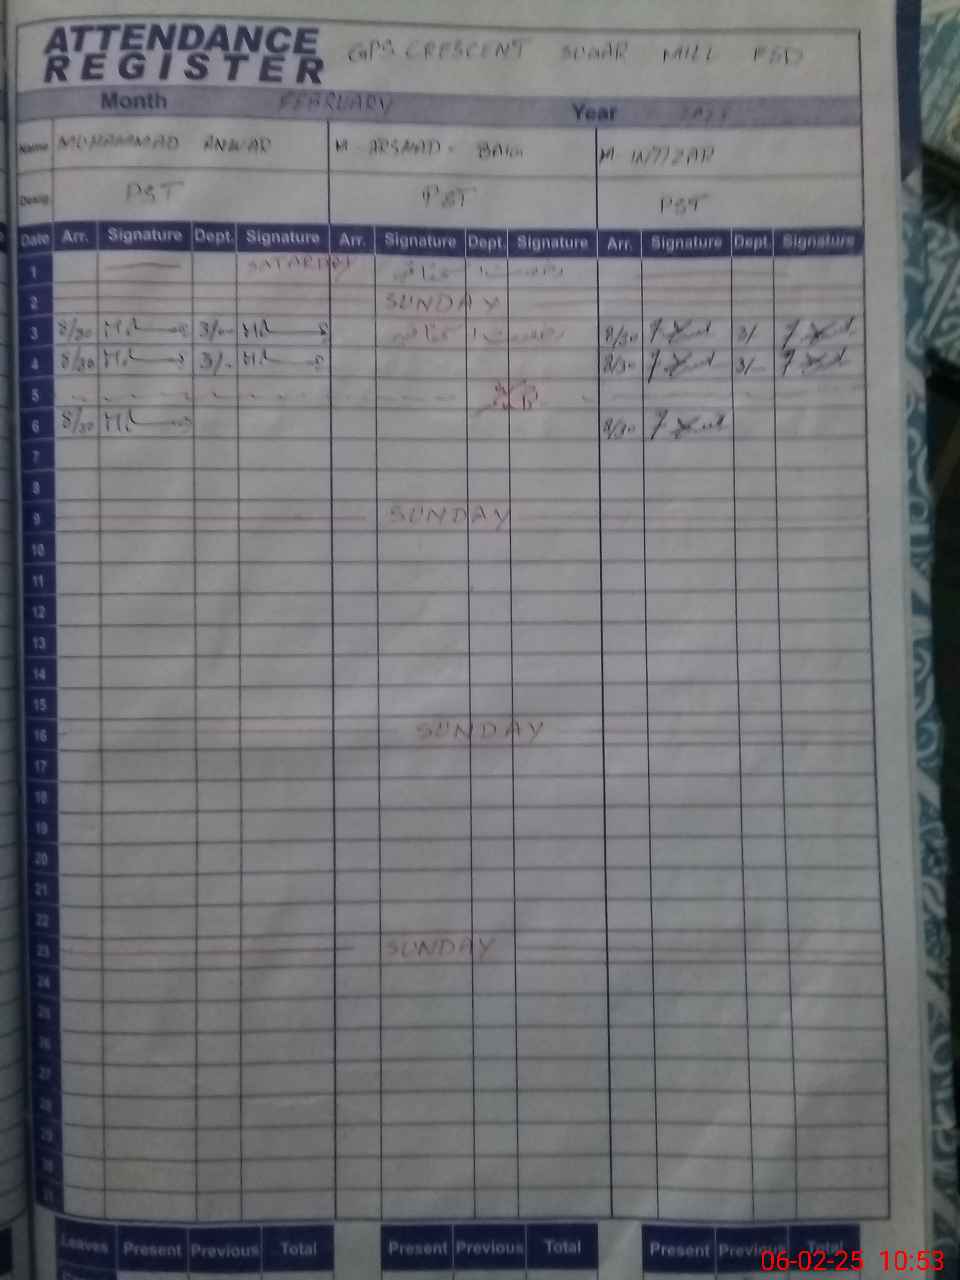 ATTENDANCE REGISTER
GPS CRESCENT SUGAR MILL FSD
Month FEBRUARY Year
Name MUHAMMAD ANWAR M. ARSHAD BAIG M. INTIZAR
Desig. PST PST PST
Date Arr. Signature Dept. Signature Arr. Signature Dept. Signature Arr. Signature Dept. Signature
1 SATARDAY
2 SUNDAY
3 8/30 3/- 8/30 3/-
4 8/30 3/- 8/30 3/-
5
6 8/30 8/30
7
8
9 SUNDAY
10
11
12
13
14
15
16 SUNDAY
17
18
19
20
21
22
23 SUNDAY
24
25
26
27
28
29
30
31
Leaves Present Previous Total Present Previous Total Present Previous Total
06-02-25 10:53